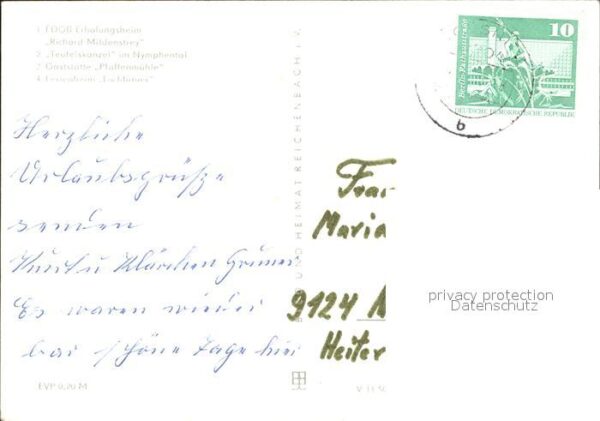 1 FDGB Erholungsheim
„Richard Mildenstrey“
2 „Teufelskanzel“ im Nymphental
3 Gaststätte „Pfaffenmühle“
4 Ferienheim
Herzliche
Urlaubsgrüße
senden
Kurt u Klärchen
Es waren wieder
paar schöne Tage hier
EVP 0,20 M
UND HEIMAT REICHENBACH i. V.
V 11 50
10
Berlin-Rathausstraße
DEUTSCHE DEMOKRATISCHE REPUBLIK
b
Frau
Maria
9124 N
Heiter
privacy protection
Datenschutz